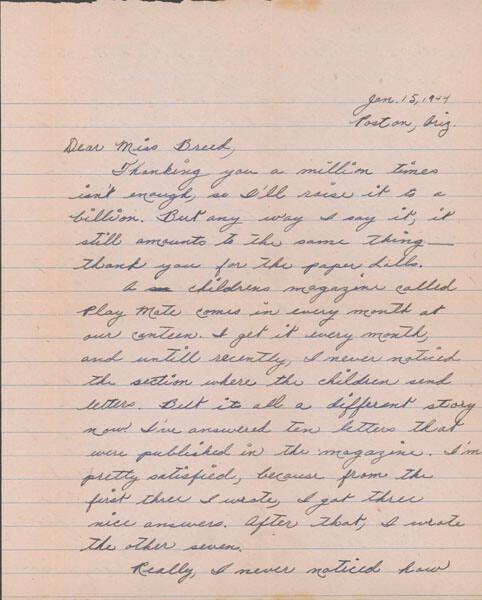 Jan. 15, 1944
Poston, Ariz.
Dear Miss Breed,
Thanking you a million times
isn't enough, so I'll raise it to a
billion. But any way I say it, it
still amounts to the same thing—
thank you for the paper dolls.
A childrens magazine called
Play Mate comes in every month at
our canteen. I get it every month,
and untill recently, I never noticed
the section where the children send
letters. But it all a different story
now. I've answered ten letters that
were published in the magazine. I'm
pretty satisfied, because from the
first three I wrote, I got three
nice answers. After that, I wrote
the other seven.
Really, I never noticed how